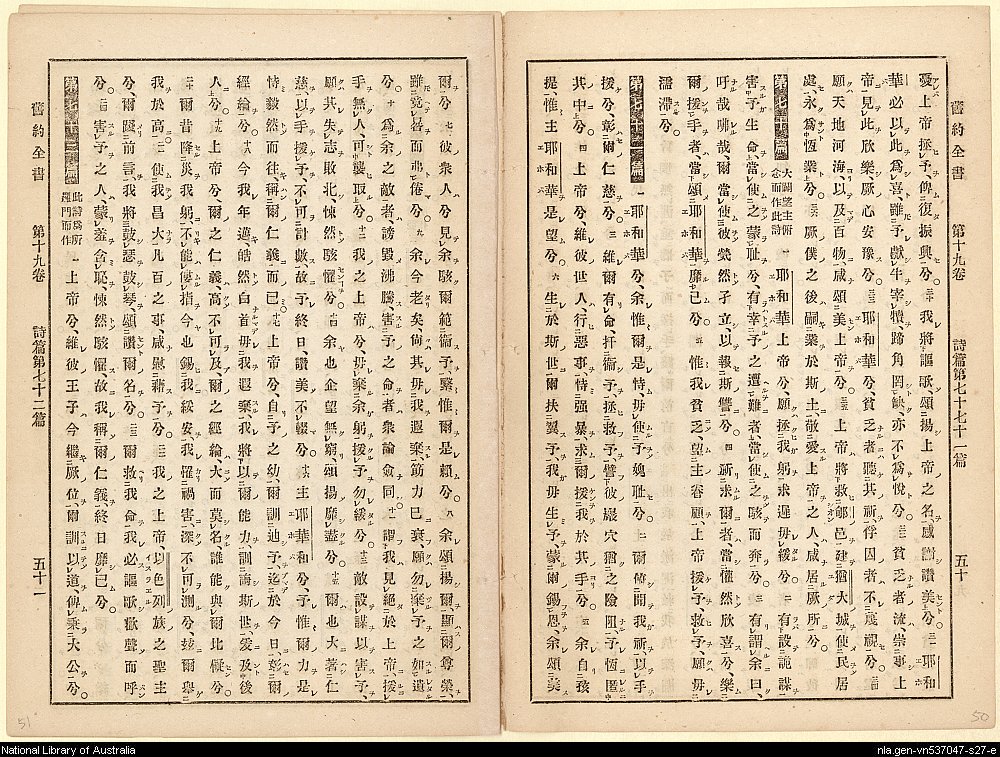 憂上帝拯予、俾復振興兮。三十我將謳歌頌揚上帝之名、感謝讚美兮。三十一耶和
華必以此爲喜、雖予獻牛宰犢、蹄角罔缺、亦不爲悅兮。三十二貧乏者流、崇事上
帝、見此欣樂、厥心安豫兮。三十三耶和華兮、貧乏者聽其祈、俘囚者不蔑視兮。三十四
願天地河海、以及百物、咸頌美上帝兮。三十五上帝將救郇邑、建猶大城、使民居
處、永爲恆業兮。三十六厥僕之後嗣、樂於斯土、敬愛上帝之人、咸居厥所兮。
第七十篇 大闢望主俯念而作此詩 一耶和華上帝兮、願拯我躬、求速毋緩兮。二有設詭謀
害予生命、當使之蒙恥兮、有幸予之遭難者、當使之駭而奔兮。三有謂余曰、
吁哉咈哉、爾當使彼煢然孑立、以報斯讐兮。四祈求爾者、當懽然欣喜兮、樂
爾援手者、當頌耶和華靡已兮。五惟我貧乏、望主眷顧、上帝援予、救予、願毋
濡滯兮。
第七十一篇 一耶和華兮、余惟爾是恃、毋使予媿恥兮。二爾俯聞我祈、以手
援兮、彰爾仁慈兮。三維爾有命、扞衞予、拯救予、譬彼巖穴、猶之險阻、予恆匿
其中兮。四上帝兮、維彼世人、行惡事、恃强暴、求爾援我於其手兮。五余自孩
提、惟主耶和華是望兮。六生於斯世、爾扶翼予、我毋生予、蒙爾錫恩、余頌美
第十九卷 詩篇第七十七十一篇 五十
50
爾兮。七彼衆人兮、見余駭爾範衞予、緊惟爾是賴兮。八余頌揚爾、顯爾尊榮、
雖竟晷而弗倦兮。九余今老矣、尙其毋我遐棄、筋力已衰、願勿棄予之如遺
兮。十爲余之敵者、謗毀沸騰、害予之命者、衆論僉同。十一謂我見絕於上帝、援
手無人、可襲取兮。十二我之上帝兮、毋棄余躬、援予勿緩兮。十三敵設謀以害予、
願其失志敗北、悚然駭懼兮。十四余也企望無窮、頌揚靡盡兮。十五爾也大著仁
慈、以手援予、不可計數、故予終日讚美不輟兮。十六主耶和華兮、予惟爾力是
恃、毅然而往、稱爾仁義而已兮。十七上帝兮、自予之幼、爾訓迪予、迄於今日、彰爾
經綸兮。十八今我年邁、皓然白首、毋我遐棄、我將以爾能力、訓誨斯世、爰及後
人兮。十九上帝兮、爾之仁義、高不可及、爾之經綸、大而莫名、誰能與爾比儗兮。
二十爾昔降災我躬、不能僂指、今也錫我綏安、我罹禍害、深不可測兮、茲爾舉
我於高。二十一使我昌大、凡百之事、咸慰藉予兮。二十二我之上帝、以色列族之聖主
兮、爾踐前言、我將鼓瑟鼓琴、頌讚爾名兮。二十三爾救我命、我必謳歌、歡聲而呼
兮。二十四害予之人、蒙羞含恥、悚然駭懼、故我稱爾仁義、終日靡已兮。
第七十二篇 此詩爲所羅門而作 一上帝兮、維彼王子、今繼厥位、爾訓以道、俾秉大公兮。
舊約全書 第十九卷 詩篇第七十二篇 五十一
51
National Library of Australia
nla.gen-vn537047-s27-e